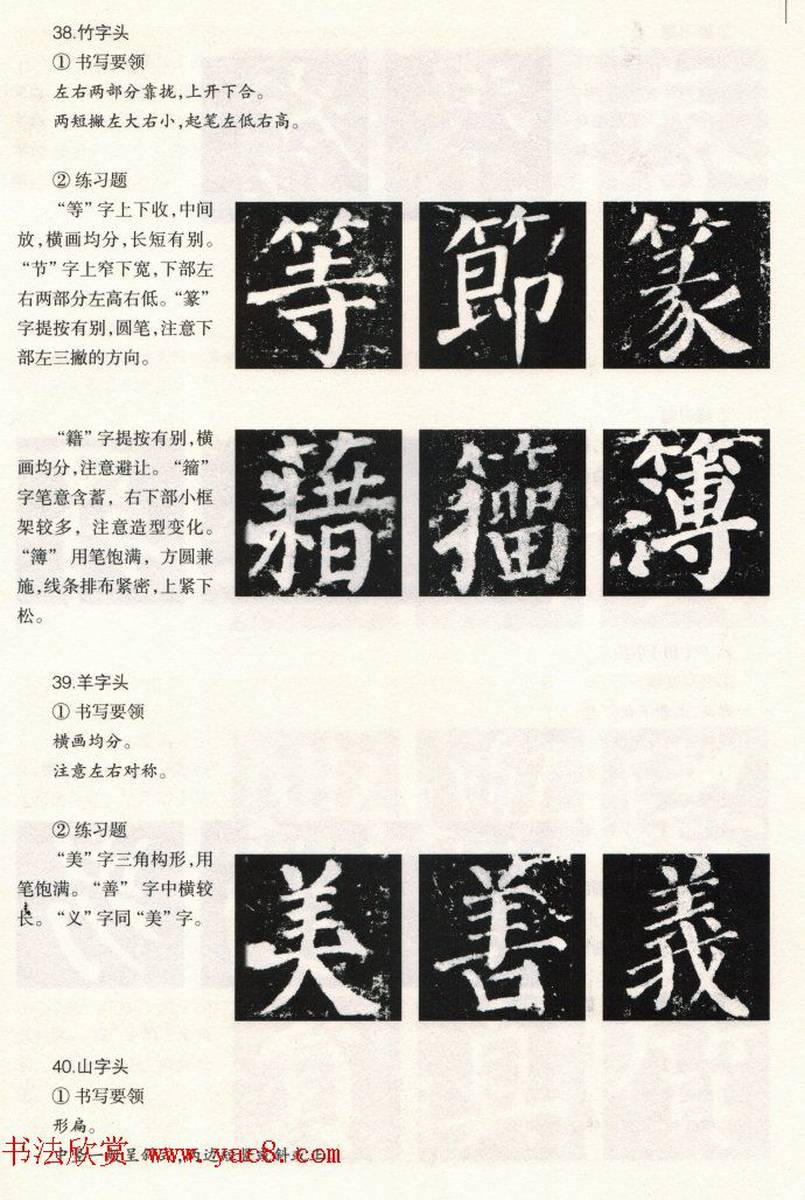 38.竹字头
①书写要领
左右两部分靠拢,上开下合。
两短撇左大右小,起笔左低右高。
②练习题
“等”字上下收,中间
放,横画均分,长短有别。
“节”字上窄下宽,下部左
右两部分左高右低。“篆”
字提按有别,圆笔,注意下
部左三撇的方向。
等 節 篆
“籍”字提按有别,横
画均分,注意避让。“籀”
字笔意含蓄, 右下部小框
架较多, 注意造型变化。
“簿” 用笔饱满, 方圆兼
施,线条排布紧密,上紧下
松。
藉 籀 簿
39.羊字头
①书写要领
横画均分。
注意左右对称。
②练习题
“美”字三角构形,用
笔饱满。“善” 字中横较
长。“义”字同“美”字。
美 善 義
40.山字头
①书写要领
形扁。
书法欣赏 www.yac8.com